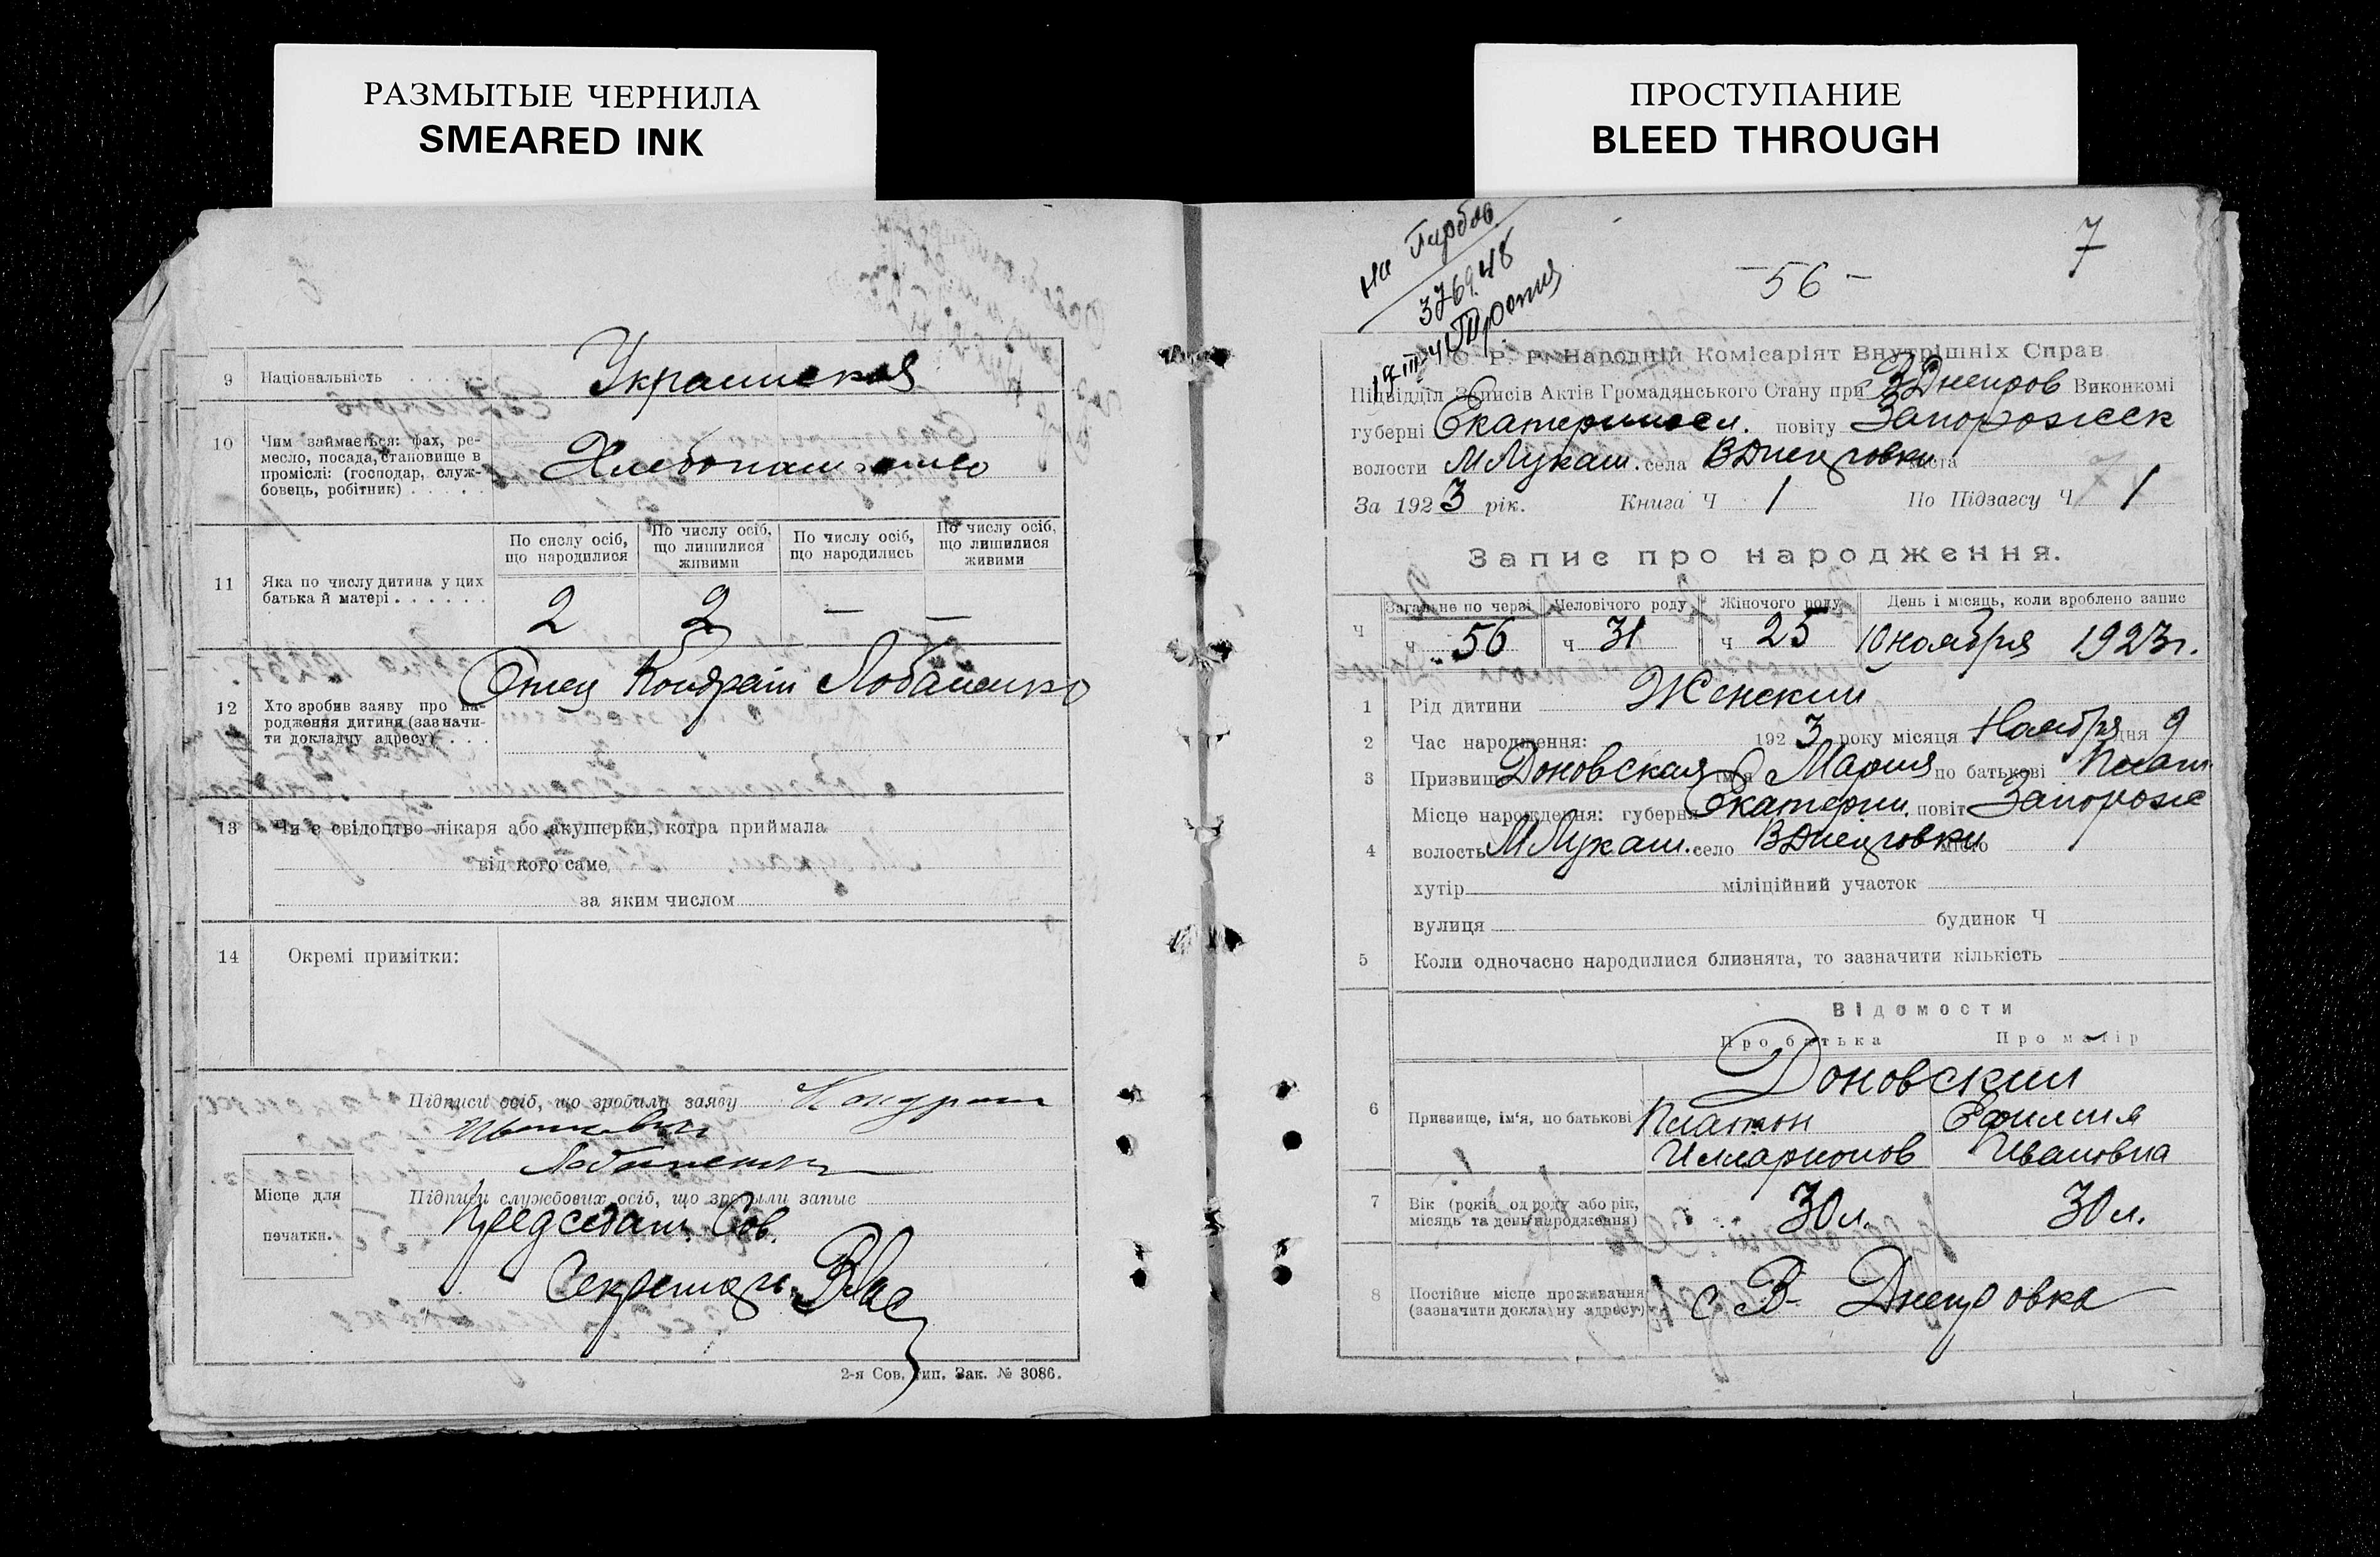 РАЗМЫТЫЕ ЧЕРНИЛА
SMEARED INK
9 Національність Украинская
10 Чим займається: фах, ре-
месло, посада, становище в
проміслі: (господар, служ-
бовець, робітник) Хлебопашество
11 Яка по числу дитина у цих
батька й матері
По сислу осіб, що народилися
По числу осіб, що лишилися живими
По числу осіб, що народились
По числу осіб, що лишилися живими
2 2 — —
12 Хто зробив заяву про на-
родження дитини (зазначи-
ти докладну адресу)
Отец Кондрат Лобаненко
13 Чи є свідоцтво лікаря або акушерки, котра приймала
від кого саме
за яким числом
14 Окремі примітки:
Підписи осіб, що зробили заяву Кондрат
Лобаненко
Місце для
печатки.
Підписи службових осіб, що зробыли запыс
Председат. Сов.
Секретарь
2-я Сов. тип. Зак. № 3086.
ПРОСТУПАНИЕ
BLEED THROUGH
7
—56—
на
376948
С. Р. Р. Народній Комісаріят Внутрішніх Справ
Підвідділ Записів Актів Громадянського Стану при ВДнепров Виконкомі
губерні Екатериносл. повіту Запорожск
волости МЛукаш. села ВДнепровки міста
За 1923 рік. Книга Ч 1 По Підзагсу Ч 1
Запис про народження.
Ч Загальне по черзі Человічого роду Жіночого роду День і місяць, коли зроблено запис
ч 56 ч 31 ч 25 10 ноября 1923г.
1 Рід дитини Женский
2 Час народження: 1923 року місяця Ноября дня 9
3 Призвище Доновская ім'я Мария по батькові Плат.
4 Місце народження: губерня Екатерин. повіт Запорож
волость МЛукаш. село ВДнепровки місто
хутір міліційний участок
вулиця будинок Ч
5 Коли одночасно народилися близнята, то зазначити кількість
Відомости
Про батька Про матір
Доновский
6 Призвище, ім'я, по батькові Платон Ефимия
Илларионов Ивановна
7 Вік (років од роду або рік,
місяць та день народження) 30 л. 30 л.
8 Постійне місце проживання
(зазначити докладну адресу) с В- Днепровка